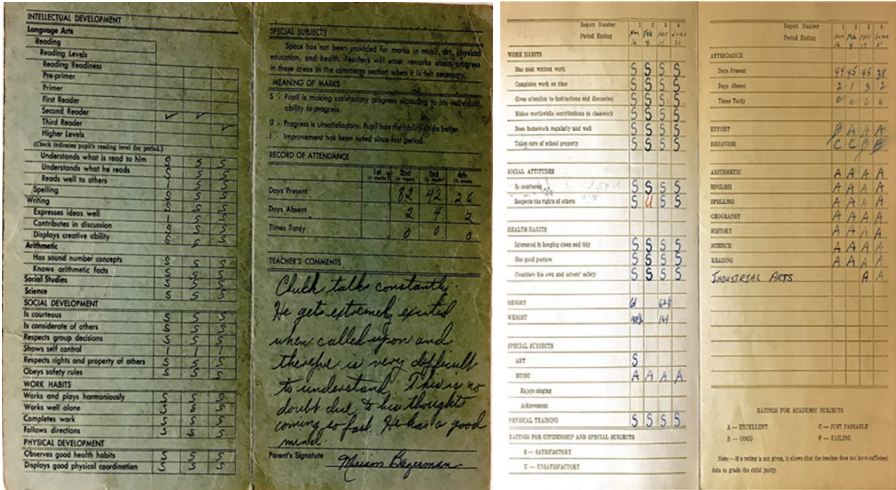 INTELLECTUAL DEVELOPMENT
Language Arts
Reading
Reading Levels
Reading Readiness
Pre-primer
Primer
First Reader
Second Reader ✓ ✓
Third Reader ✓
Higher Levels
(Check indicates pupil's reading level for period.)
Understands what is read to him S S S
Understands what he reads S S S
Reads well to others S S
Spelling S S S
Writing
Expresses ideas well S S S
Contributes in discussion S S
Displays creative ability S S S
Arithmetic
Has sound number concepts S S S
Knows arithmetic facts S S S
Social Studies S S S
Science S S S
SOCIAL DEVELOPMENT
Is courteous S S S
Is considerate of others S S S
Respects group decisions S S S
Shows self control
Respects rights and property of others S S S
Obeys safety rules S S S
WORK HABITS
Works and plays harmoniously S S S
Works well alone S S S
Completes work S S S
Follows directions S S S
PHYSICAL DEVELOPMENT
Observes good health habits S S S
Displays good physical coordination S S S
SPECIAL SUBJECTS
Space has not been provided for marks in music, art, physical
education, and health. Teachers will enter remarks progress
in these areas in the comments section when it is felt necessary.
MEANING OF MARKS
S - Pupil is making satisfactory progress according to his individual
ability to progress.
U - Progress is unsatisfactory. Pupil has the ability to do better.
I - Improvement has been noted since last period.
RECORD OF ATTENDANCE
1st 2nd 3rd 4th
Days Present 82 42 26
Days Absent 2 4 2
Times Tardy 0 0 0
TEACHER'S COMMENTS
Chuck talks constantly.
He gets extremely excited
when called upon and
therefore is very difficult
to understand. This is no
doubt due to his thoughts
coming so fast. He has a good
mind.
Parent's Signature Miriam Bagerman
Report Number 1 2 3 4
Period Ending Nov Feb Apr June
WORK HABITS
Has neat written work S S S S
Completes work on time S S S S
Gives attention to instructions and discussion S S S S
Makes worthwhile contributions to classwork S S S S
Does homework regularly and well S S S S
Takes care of school property S S S S
SOCIAL ATTITUDES
Is courteous S S S S
Respects the rights of others S U S S
HEALTH HABITS
Interested in keeping clean and tidy S S S S
Has good posture S S S S
Considers his own and others' safety S S S S
HEIGHT 61
WEIGHT
SPECIAL SUBJECTS
ART S
MUSIC A A A A
Enjoys singing
Achievement
PHYSICAL TRAINING S S S S
RATINGS FOR CITIZENSHIP AND SPECIAL SUBJECTS
S — SATISFACTORY
U — UNSATISFACTORY
Report Number 1 2 3 4
Period Ending Nov Feb Apr June
ATTENDANCE
Days Present 44 45 45 38
Days Absent 2 1 3 2
Times Tardy 0 0 0 0
EFFORT A A A
BEHAVIOR C C B B
ARITHMETIC A A A A
ENGLISH A A A A
SPELLING A A A A
GEOGRAPHY A A A A
HISTORY A A A A
SCIENCE A A A A
READING A A A A
INDUSTRIAL ARTS A A
RATINGS FOR ACADEMIC SUBJECTS
A — EXCELLENT C — JUST PASSABLE
B — GOOD F — FAILING
Note:—If a rating is not given, it shows that the teacher does not have sufficient
data to grade the child justly.